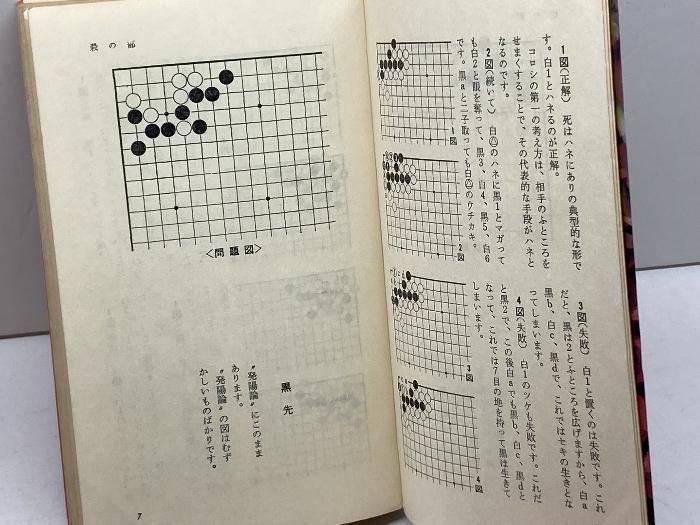 1図(正解) 死はハネにありの典型的な形で
す。白1とハネるのが正解。
コロシの第一の考え方は、相手のふところを
せまくすることで、その代表的な手段がハネと
なるのです。
2図(続いて) 白△のハネに黒1とマガって
も白2と眼を奪って、黒3、白4、黒5、白6
です。黒aと二子取っても白△のウチカキ。
1図
2図
3図(失敗) 白1と置くのは失敗です。これ
だと、黒は2とふところを広げますから、白a
黒b、白c、黒dで、これではセキの生きとな
ってしまいます。
4図(失敗) 白1のツケも失敗です。これだ
と黒2で、この後白aでも黒b、白c、黒dと
なって、これでは7目の地を持って黒は生きて
しまいます。
3図
4図
殺の部
<問題図>
黒先
"発陽論"にこのまま
あります。
"発陽論"の図はむず
かしいものばかりです。
7